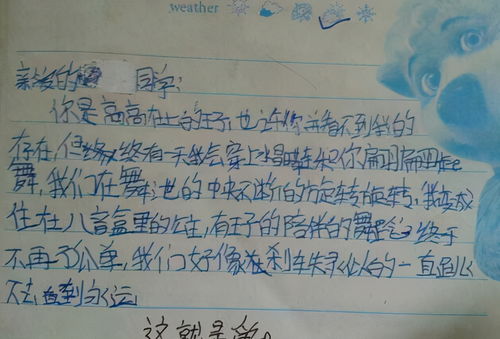 weather
亲爱的 同学:
你是高高在上的王子,也许你并看不到我的
存在,但终终有一天我会穿上水晶鞋和你翩翩起
舞,我们在舞池的中央不断的旋转旋转,我变成
住在八音盒里的女生,有王子的陪伴的舞 终于
不再孤单,我们好像 刹车失 似的一直
下去 到永远
这就是